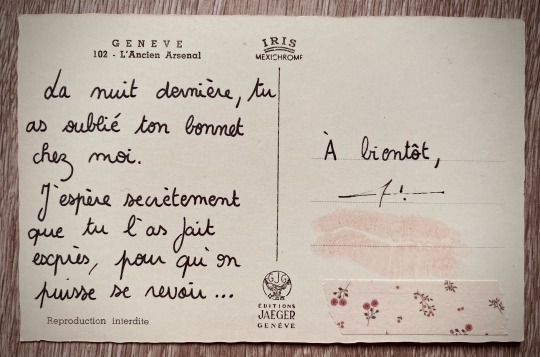 GENEVE
102 - L'Ancien Arsenal
IRIS
MEXICHROME
La nuit dernière, tu
as oublié ton bonnet
chez moi.
J'espère secrètement
que tu l'as fait
exprès, pour qu'on
puisse se revoir ...
À bientôt,
EDITIONS
JAEGER
GENÈVE
Reproduction interdite